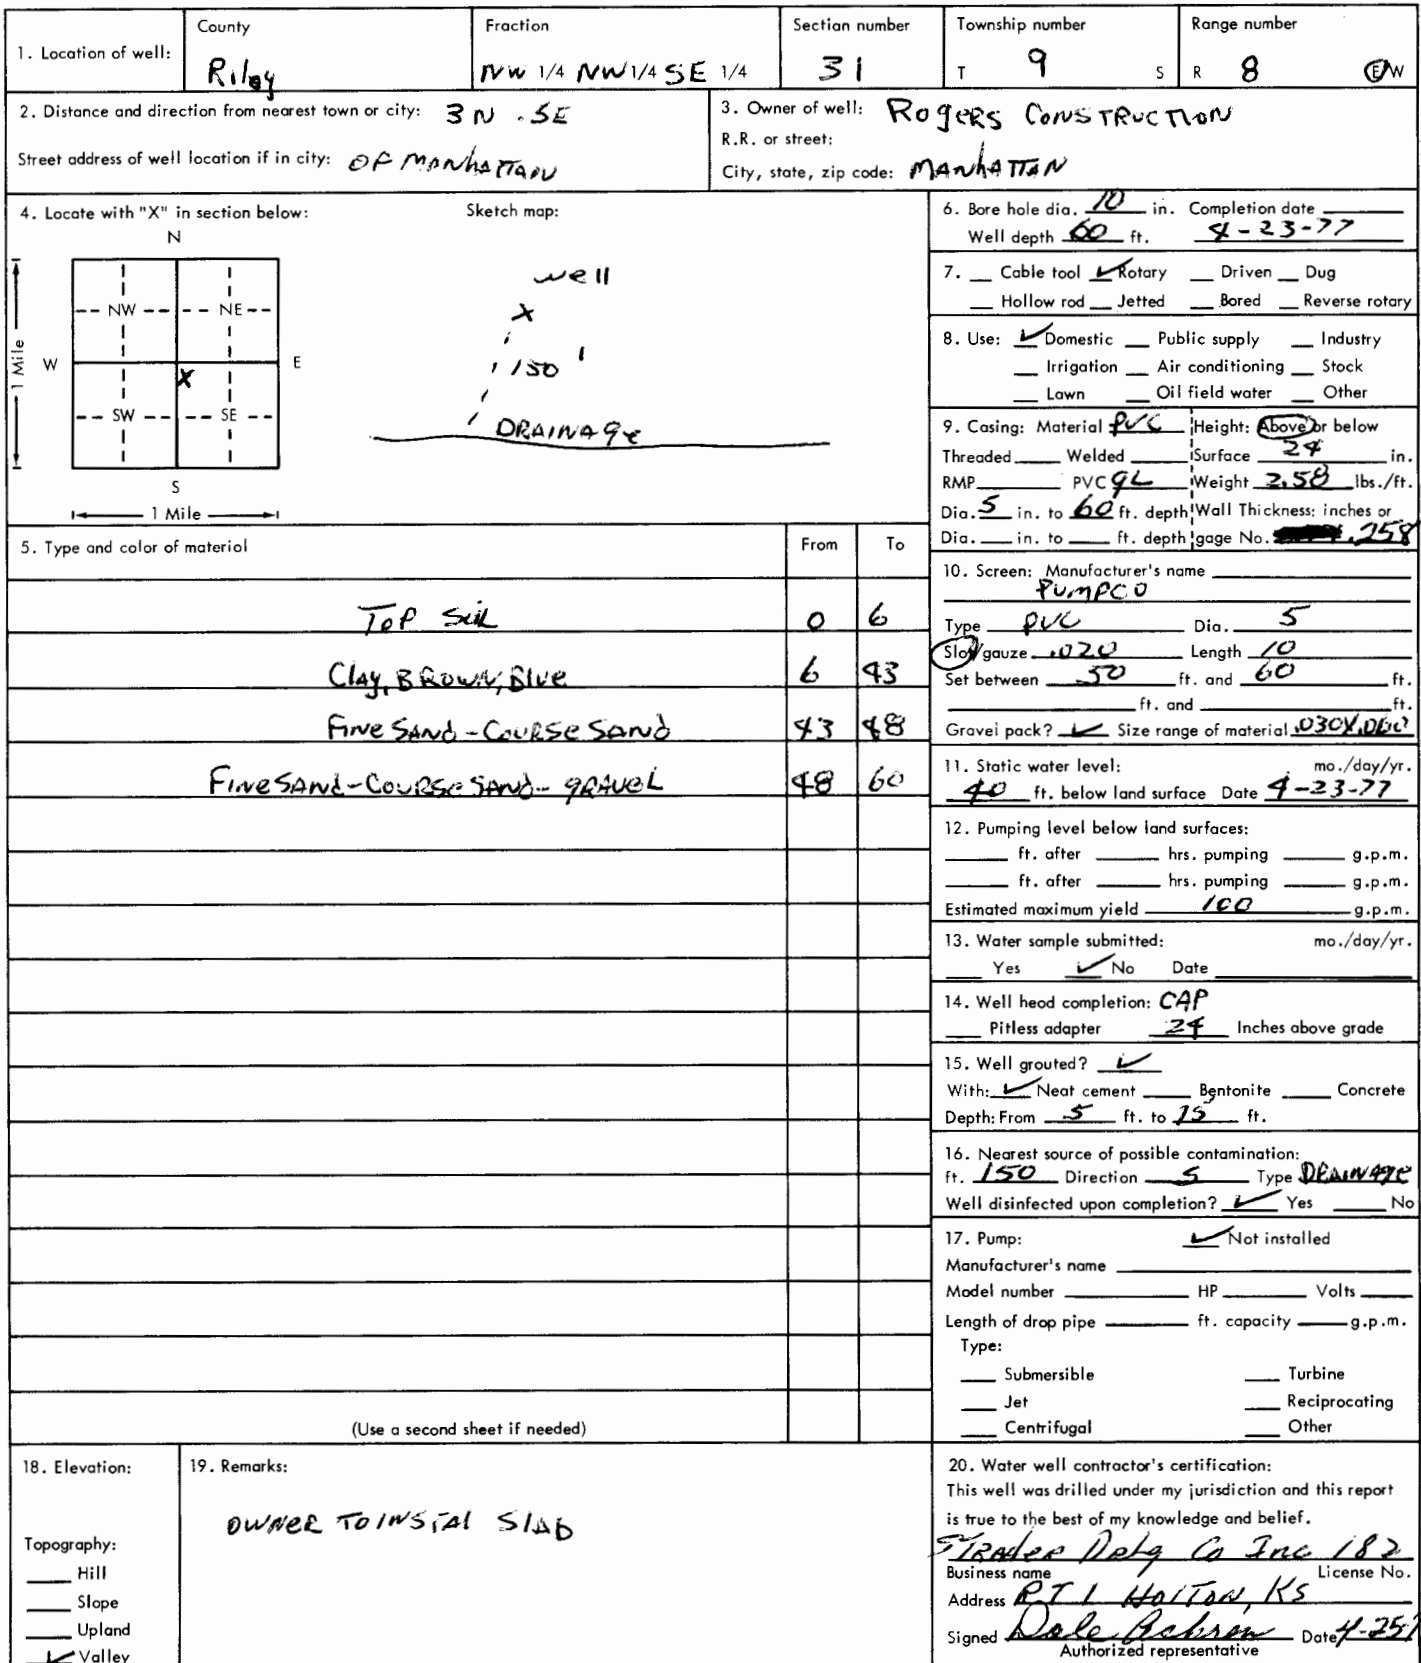 County Fraction Section number Township number Range number
1. Location of well: Riley NW 1/4 NW 1/4 SE 1/4 31 T 9 S R 8 E/W
2. Distance and direction from nearest town or city: 3 N . SE
Street address of well location if in city: OF MANHATTAN
3. Owner of well: ROGERS CONSTRUCTION
R.R. or street:
City, state, zip code: MANHATTAN
4. Locate with "X" in section below: Sketch map:
N
NW NE
W E
X
SW SE
S
1 Mile
1 Mile
well
X
150 '
DRAINAGE
5. Type and color of material From To
TOP SOIL 0 6
Clay, BROWN, Blue 6 43
FINE SAND - COURSE SAND 43 48
FINE SAND - COURSE SAND - GRAVEL 48 60
(Use a second sheet if needed)
6. Bore hole dia. 10 in. Completion date
Well depth 60 ft. 4-23-77
7. Cable tool ✓ Rotary Driven Dug
Hollow rod Jetted Bored Reverse rotary
8. Use: ✓ Domestic Public supply Industry
Irrigation Air conditioning Stock
Lawn Oil field water Other
9. Casing: Material PVC Height: Above or below
Threaded Welded Surface 24 in.
RMP PVC GL Weight 2.58 lbs./ft.
Dia. 5 in. to 60 ft. depth Wall Thickness: inches or
Dia. in. to ft. depth gage No. .258
10. Screen: Manufacturer's name
PUMPCO
Type PVC Dia. 5
Slot/gauze .020 Length 10
Set between 50 ft. and 60 ft.
ft. and ft.
Gravel pack? ✓ Size range of material .030X.060
11. Static water level: mo./day/yr.
40 ft. below land surface Date 4-23-77
12. Pumping level below land surfaces:
ft. after hrs. pumping g.p.m.
ft. after hrs. pumping g.p.m.
Estimated maximum yield 100 g.p.m.
13. Water sample submitted: mo./day/yr.
Yes ✓ No Date
14. Well head completion: CAP
Pitless adapter 24 Inches above grade
15. Well grouted? ✓
With: ✓ Neat cement Bentonite Concrete
Depth: From 5 ft. to 15 ft.
16. Nearest source of possible contamination:
ft. 150 Direction S Type DRAINAGE
Well disinfected upon completion? ✓ Yes No
17. Pump: ✓ Not installed
Manufacturer's name
Model number HP Volts
Length of drop pipe ft. capacity g.p.m.
Type:
Submersible Turbine
Jet Reciprocating
Centrifugal Other
18. Elevation:
Topography:
Hill
Slope
Upland
✓ Valley
19. Remarks:
OWNER TO INSTAL SLAB
20. Water well contractor's certification:
This well was drilled under my jurisdiction and this report
is true to the best of my knowledge and belief.
STRADER Drlg Co Inc 182
Business name License No.
Address RT 1 HOLTON, KS
Signed Dale Date 4-25
Authorized representative